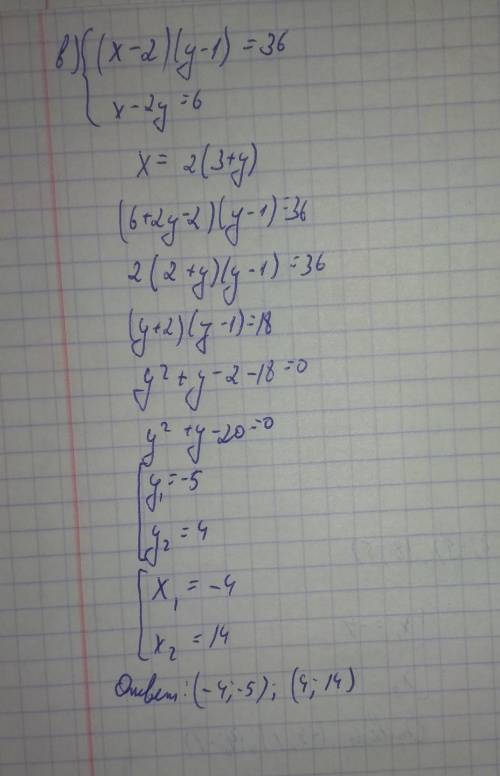 в) { (x-2)(y-1)=36
x-2y=6
x= 2(3+y)
(6+2y-2)(y-1)=36
2(2+y)(y-1)=36
(y+2)(y-1)=18
y²+y-2-18=0
y²+y-20=0
[ y₁=-5
y₂=4
[ x₁=-4
x₂=14
Ответ: (-4;-5); (4;14)